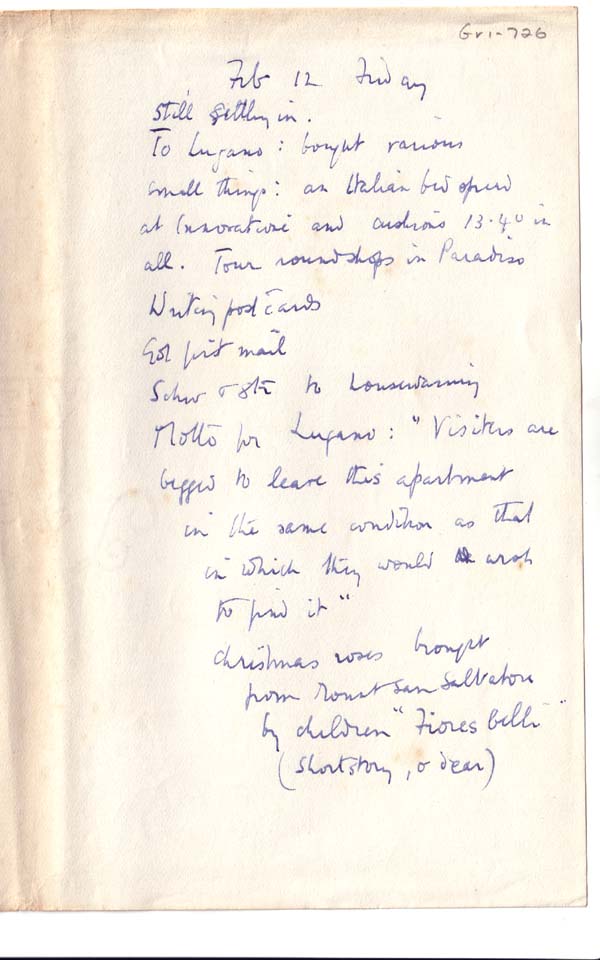 Gr1-726
Feb 12 Friday
Still settling in.
To Lugano: bought various
small things: an Italian bedspread
at Innovazione and cushions 13.40 in
all. Tour round shops in Paradiso
Writing postcards
Got first mail
to housewarming
Motto for Lugano: "Visitors are
begged to leave this apartment
in the same condition as that
in which they would wish
to find it"
Christmas roses brought
from Mount San Salvatore
by children "Fiores belli"
(Short story, o dear)